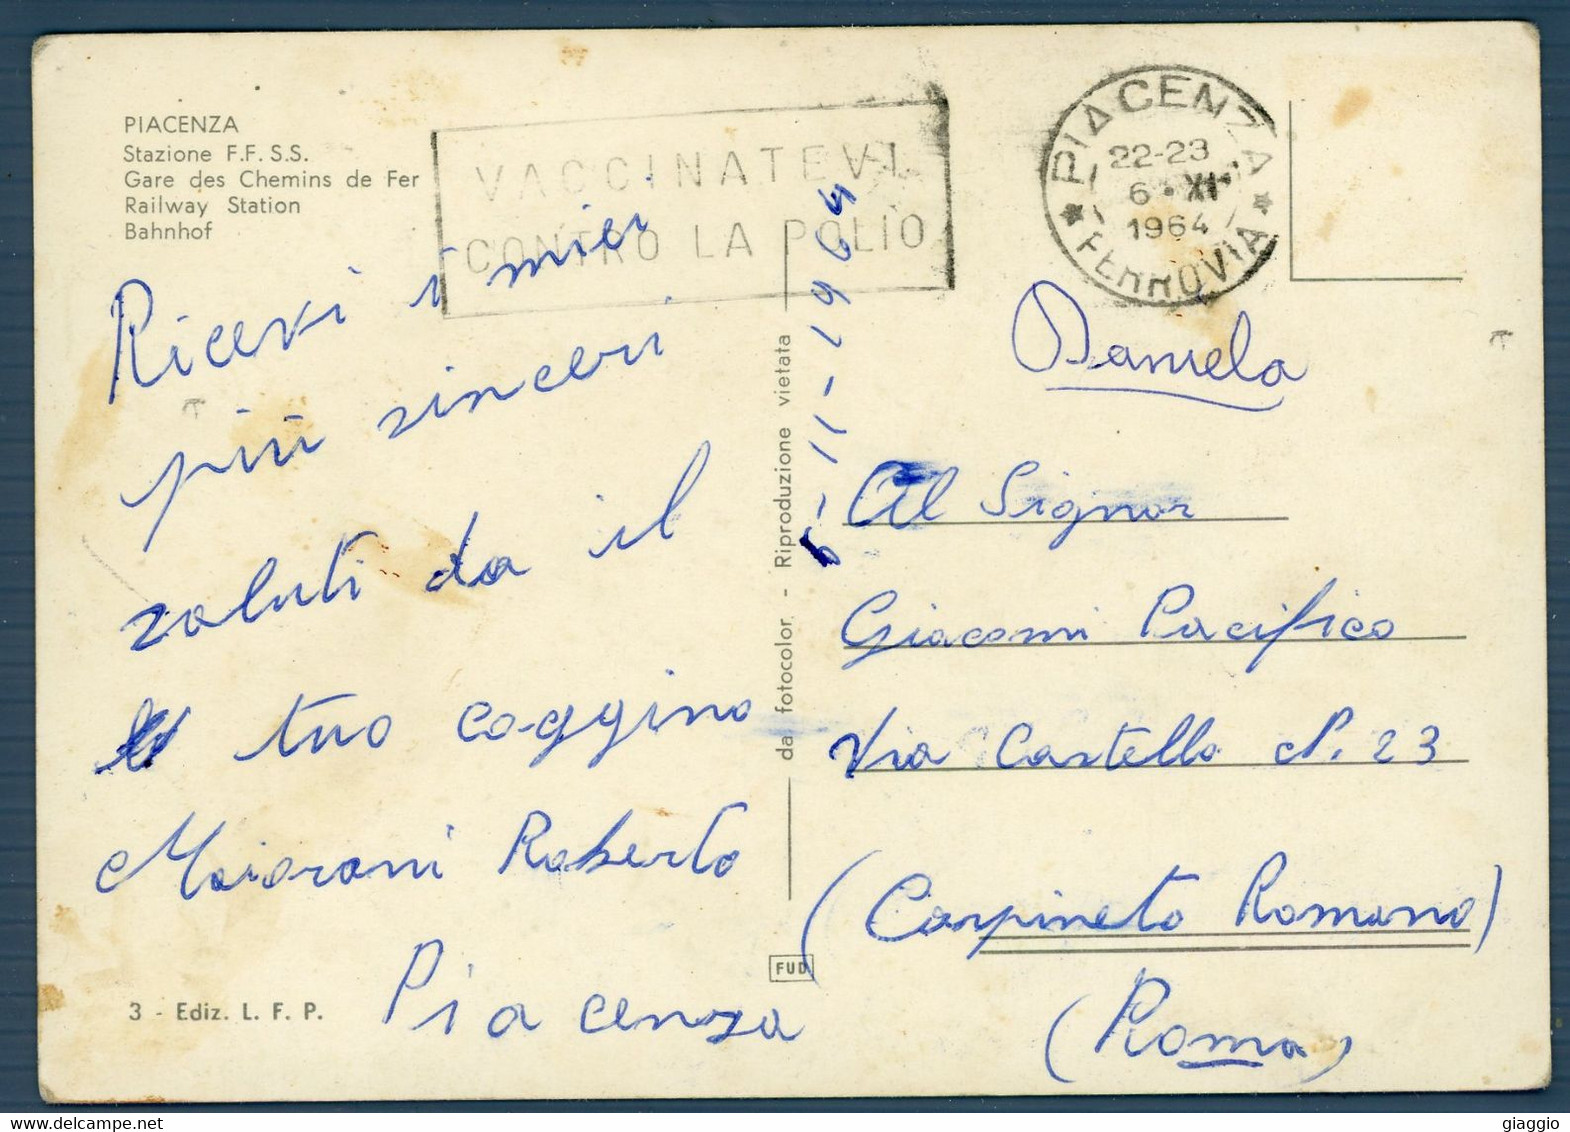 PIACENZA
Stazione F.F.S.S.
Gare des Chemins de Fer
Railway Station
Bahnhof
VACCINATEVI
CONTRO LA POLIO
PIACENZA
22-23
6 • XI •
1964
* FERROVIA *
Ricevi i miei
più sinceri
saluti da il
tuo coggino
Maiorani Roberto
Piacenza
3 - Ediz. L. F. P.
da fotocolor - Riproduzione vietata
FUD
6-11-1964
Daniela
Al Signor
Giacomi Pacifico
Via Castello N. 23
(Carpineto Romano)
(Roma)
giaggio